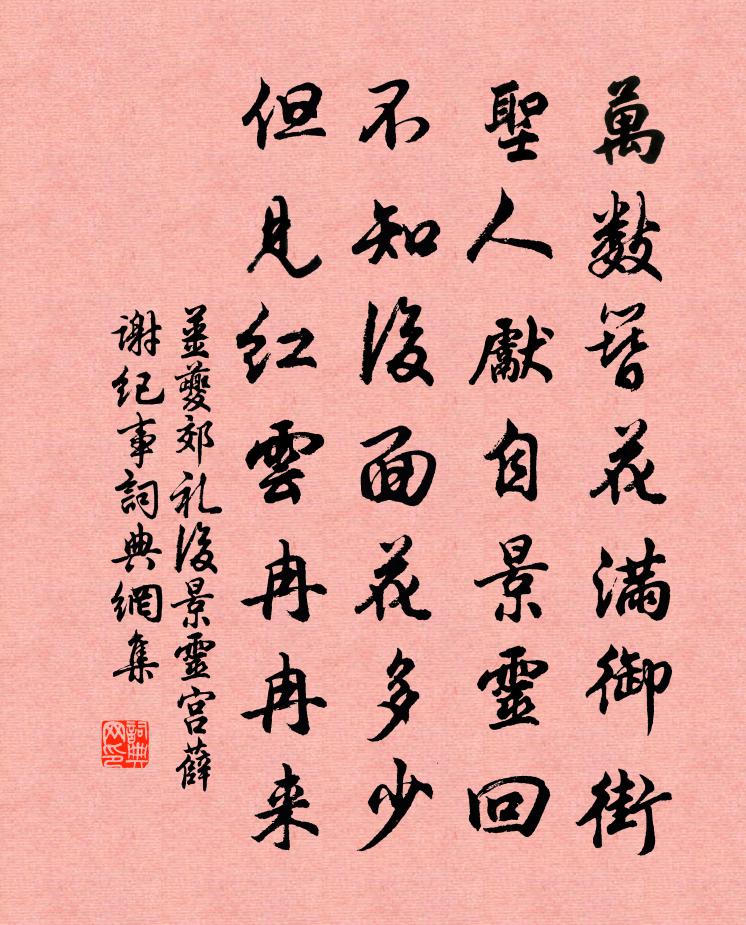 萬数簪花满御街
聖人獻自景靈回
不知後面花多少
但見红雲冉冉来
姜夔郊礼後景靈宫薛
谢纪事詞典網集
詞典网印